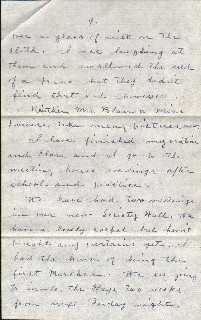 9.
over a glass of milk on the
cloth. I was laughing at
them and swallowed the end
of a but they didn't
find that out however.
Neither Mr. Blain or Miss
take many pictures now.
I have finished my
and I go to the
meeting house evenings after
school and practice.
We have had two meetings
in our new Society Hall. We
have a lovely carpet but haven't
bought any curtains yet. I
had the honor of being the
first We are going
to the two weeks
from next Tuesday night.